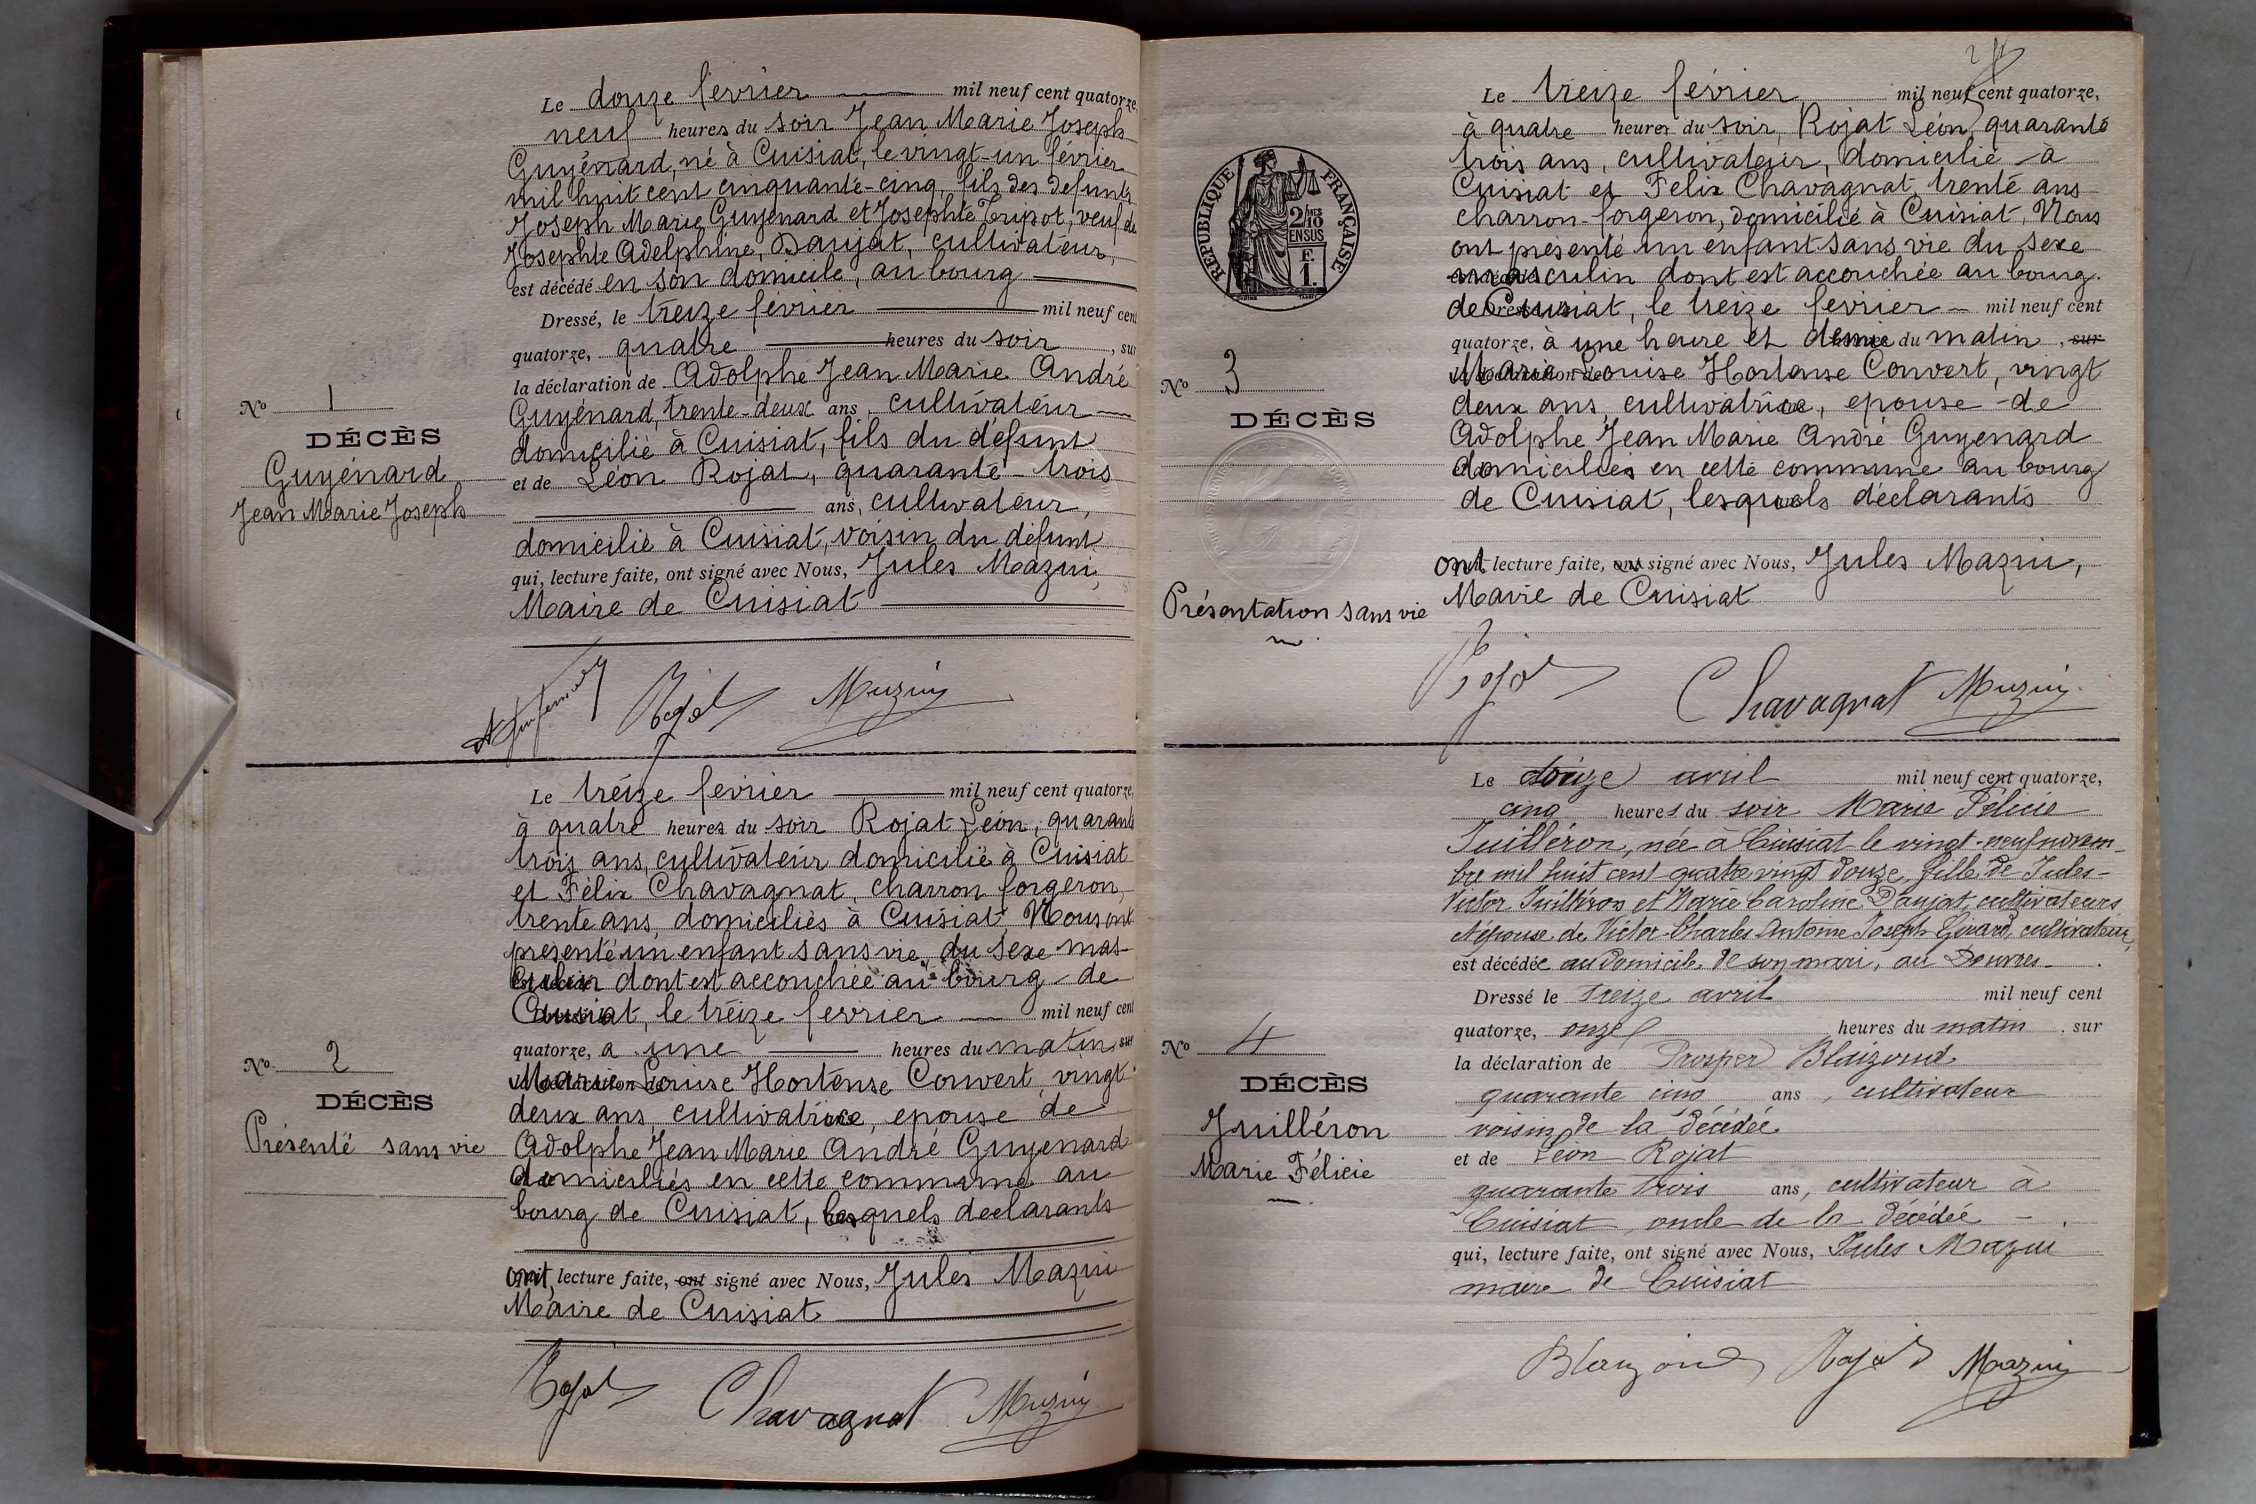 Le douze février mil neuf cent quatorze,
neuf heures du soir Jean Marie Joseph
Guyénard, né à Cuisiat, le vingt-un février
mil huit cent cinquante-cinq, fils des defunts
Joseph Marie Guyenard et Josephte Tripot, veuf de
Josephte Adelphine, Daujat, cultivateur,
est décédé en son domicile, au bourg
Dressé, le treize février mil neuf cent
quatorze, quatre heures du soir, sur
la déclaration de Adolphe Jean Marie André
No 1
Guyénard, trente-deux ans, cultivateur
DÉCÈS
domicilié à Cuisiat, fils du défunt
Guyénard
et de Léon Rojat, quarante-trois
Jean Marie Joseph
ans, cultivateur,
domicilié à Cuisiat, voisin du défunt
qui, lecture faite, ont signé avec Nous, Jules Mazui,
Maire de Cuisiat
Rojat Mazuy
Le treize fevrier mil neuf cent quatorze,
à quatre heures du soir Rojat Léon, quarante
trois ans, cultivateur domicilié à Cuisiat
et Félix Chavagnat, charron forgeron,
trente ans, domiciliés à Cuisiat, Nous ont
presenté un enfant sans vie du sexe mas-
culin dont est accouchée au bourg de
Cuisiat, le treize fevrier mil neuf cent
No 2
quatorze, a une heures du matin sur
Marie Louise Hortense Convert, vingt
DÉCÈS
deux ans, cultivatrice, epouse de
Présenté sans vie
Adolphe Jean Marie André Guyenard
domiciliés en cette commune au
bourg de Cuisiat, lesquels declarants
ont, lecture faite, ont signé avec Nous, Jules Mazui
Maire de Cuisiat
Rojat Chavagnat Mazuy
Le treize février mil neuf cent quatorze,
à quatre heures du soir, Rojat Léon, quarante
trois ans, cultivateur, domicilié à
Cuisiat et Felix Chavagnat, trente ans
charron-forgeron, domicilié à Cuisiat, Nous
ont présenté un enfant sans vie du sexe
masculin dont est accouchée au bourg.
de Cuisiat, le treize fevrier mil neuf cent
quatorze, à une heure et demie du matin, sur
Marie Louise Hortense Convert, vingt
deux ans, cultivatrice, epouse de
Adolphe Jean Marie André Guyenard
domiciliés en cette commune au bourg
de Cuisiat, lesquels déclarants
ont lecture faite, ont signé avec Nous, Jules Mazui,
Maire de Cuisiat
RÉPUBLIQUE FRANÇAISE
2/10 EN SUS
F.
1.
No 3
DÉCÈS
Présentation sans vie
Rojat Chavagnat Mazuy
Le douze avril mil neuf cent quatorze,
cinq heures du soir Marie Félicie
Juilléron, née à Cuisiat le vingt-neuf novem-
bre mil huit cent quatre vingt douze, fille de Jules-
Victor Juilléron et Marie Caroline Daujat, cultivateurs
et épouse de Victor Charles Antoine Joseph Girard, cultivateur,
est décédée au domicile de son mari, au Devrres.
Dressé le treize avril mil neuf cent
quatorze, onze heures du matin, sur
la déclaration de Prosper Blaizond
quarante cinq ans, cultivateur
voisin de la décédée
et de Léon Rojat
quarante trois ans, cultivateur à
Cuisiat oncle de la décédée
qui, lecture faite, ont signé avec Nous, Jules Mazui
maire de Cuisiat
No 4
DÉCÈS
Juilléron
Marie Félicie
Blaizond Rojat Mazuy